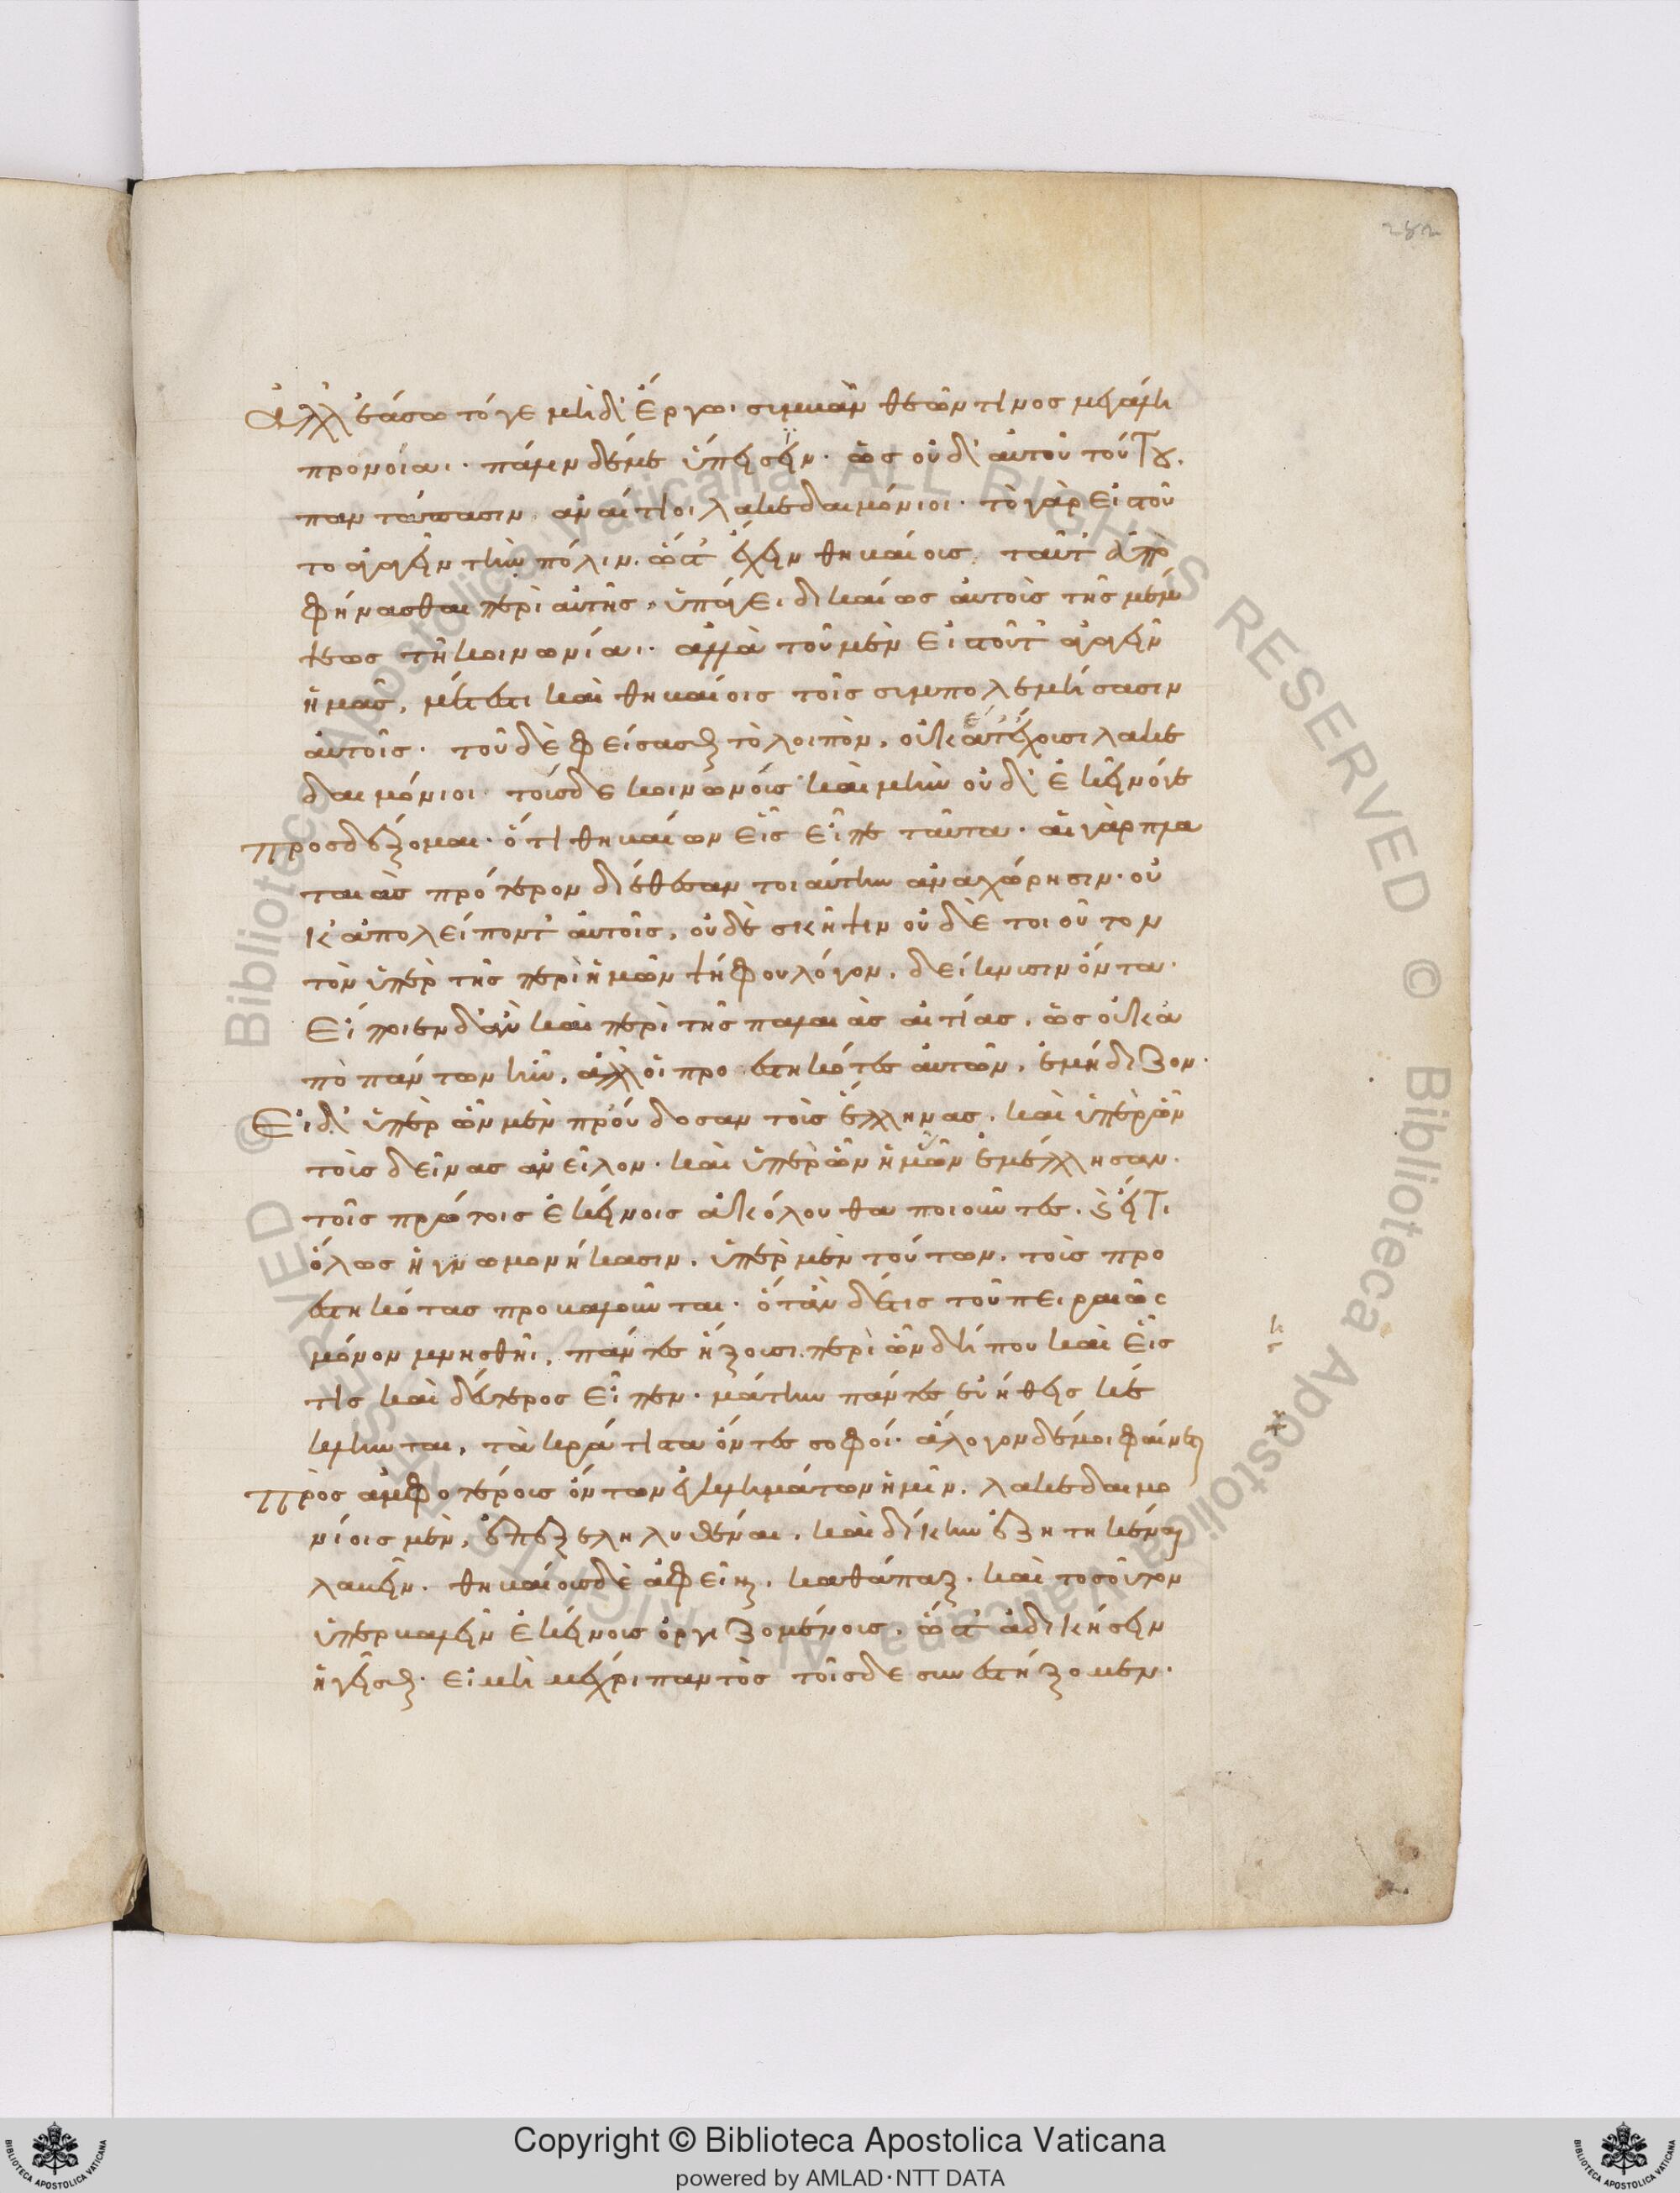 282
ἀλλ' ἐάσω τό γε μὴ δι' ἔργωι συμβὰν θεῶν τινος μεγάληι
προνοίαι. πάλιν δέ με ὑπέισειν. ὡς οὐδ' αὐτοῦ τούτου
παντάπασιν ἀναίτιοι λακεδαιμόνιοι. τὸ γὰρ εἰς τοῦ
το ἀγαγεῖν τὴν πόλιν. ὥστ' ἔχειν θηβαίοις ταῦτ' ἀπο
φήνασθαι περὶ αὐτῆς, ὑπάγει δικαίως αὐτοὺς τῆς μέμ
ψεως τῆι κοινωνίαι. ἀλλὰ τοῦ μὲν εἰς τοῦτ' ἀγαγεῖν
ἡμᾶς, μέτεστι καὶ θηβαίοις τοῖς συμπολεμήσασιν
αὐτοῖς. τοῦ δὲ φείσασθαι τὸ λοιπὸν, οὐκέτ' ἔχουσι λακε
δαιμόνιοι τούσδε κοινωνούς καὶ μὴν οὐδ' ἐκεῖνό γε
προσδέξομαι. ὅτι θηβαίων εἷς εἶπε ταῦτα. αἱ γὰρ πλα
ταιαὶ πρότερον διέθεσαν τοιαύτην ἀναχώρησιν. οὐ
κ ἀπολείποντ' αὐτοῖς, οὐδὲ σκῆψιν οὐδὲ τοιοῦτον
τὸν ὑπὲρ τῆς περὶ ἡμῶν ψήφου λόγον, δείκνυσιν ὄντα.
Εἴποιεν δ' ἂν καὶ περὶ τῆς παλαιᾶς αἰτίας, ὡς οὐκ ἀ
πὸ πάντων ἦν, ἀλλ' οἱ προεστηκότες αὐτῶν, ἐμήδιζον.
Εἰ δ' ὑπὲρ ὧν μὲν προύδοσαν τοὺς ἕλληνας, καὶ ὑπὲρ ὧν
τοὺς δεῖνας ἀνεῖλον. καὶ ὑπὲρ ὧν ἡμῶν ἐμέλλησαν.
τοῖς πρώτοις ἐκείνοις ἀκόλουθα ποιοῦντες. καὶ εἴ τι
ὅλως ἠγνωμονήκασιν. ὑπὲρ μὲν τούτων, τοὺς προ
εστηκότας προκαλοῦνται. ὅταν δέ τις τοῦ πειραιῶς
μόνον μνησθῆι, πάντες ἥξουσι. περὶ ὧν δή που καὶ εἷς
τις καὶ δεύτερος εἶπεν. μάτην πάντες εὐήθεις κέ
κληνται, τὰ κράτιστα ὄντες σοφοί. ἄλογον δέ μοι φαίνεται
πρὸς ἀμφοτέρους ὄντων ἐγκλημάτων ἡμῖν, λακεδαιμο
νίοις μὲν, ἐπεξεληλυθέναι, καὶ δίκην ἐζητηκέναι
λαβεῖν. θηβαίοις δὲ ἀφεῖναι, καθάπαξ. καὶ τοσοῦτον
ὑπερβαλεῖν ἐκείνοις ὀργιζομένους, ὥστ' ἀδικήσειν
ἡγεῖσθαι. εἰ μὴ μέχρι παντὸς τοῖσδε συνεστήξομεν.